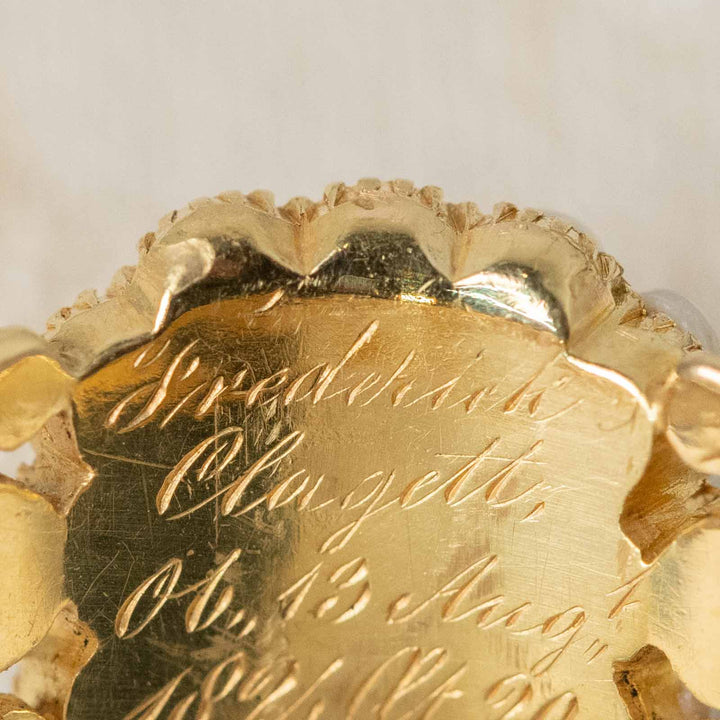 Frederick
Clagett,
Ob. 13 Aug.t